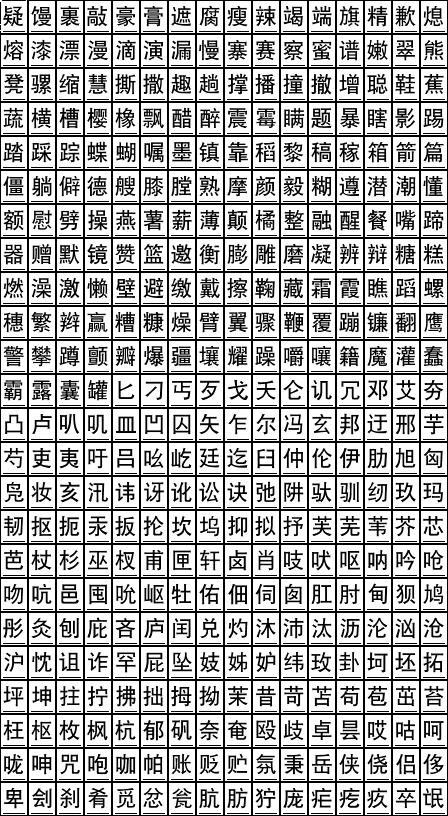 疑馒裹敲豪膏遮腐瘦辣竭端旗精歉熄
熔漆漂漫滴演漏慢寨赛察蜜谱嫩翠熊
凳骡缩慧撕撒趣趟撑播撞撤增聪鞋蕉
蔬横槽樱橡飘醋醉震霉瞒题暴瞎影踢
踏踩踪蝶蝴嘱墨镇靠稻黎稿稼箱箭篇
僵躺僻德艘膝膛熟摩颜毅糊遵潜潮懂
额慰劈操燕薯薪薄颠橘整融醒餐嘴蹄
器赠默镜赞篮邀衡膨雕磨凝辨辩糖糕
燃澡激懒壁避缴戴擦鞠藏霜霞瞧蹈螺
穗繁辫赢糟糠燥臂翼骤鞭覆蹦镰翻鹰
警攀蹲颤瓣爆疆壤耀躁嚼嚷籍魔灌蠢
霸露囊罐匕刁丐歹戈夭仑讥冗邓艾夯
凸卢叭叽皿凹囚矢乍尔冯玄邦迂邢芋
芍吏夷吁吕吆屹廷迄臼仲伦伊肋旭匈
凫妆亥汛讳讶讹讼诀弛阱驮驯纫玖玛
韧抠扼汞扳抡坎坞抑拟抒芙芜苇芥芯
芭杖杉巫杈甫匣轩卤肖吱吠呕呐吟呛
吻吭邑囤吮岖牡佑佃伺囱肛肘甸狈鸠
彤灸刨庇吝庐闰兑灼沐沛汰沥沦汹沧
沪忱诅诈罕屁坠妓姊妒纬玫卦坷坯拓
坪坤拄拧拂拙拇拗茉昔苛苫苟苞茁苔
枉枢枚枫杭郁矾奈奄殴歧卓昙哎咕呵
咙呻咒咆咖帕账贬贮氛秉岳侠侥侣侈
卑刽刹肴觅忿瓮肮肪狞庞疟疙疚卒氓